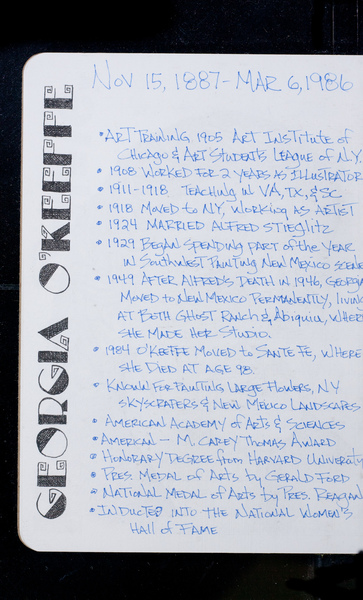 GEORGIA O'KEEFFE
NOV 15, 1887 - MAR 6, 1986
• ART TRAINING 1905 ART INSTITUTE of
CHICAGO & ART STUDENT'S LEAGUE of N.Y.
• 1908 WORKED FOR 2 YEARS AS ILLUSTRATOR
• 1911-1918 TEACHING in VA, TX, & SC
• 1918 MOVED to NY, WORKING AS ARTIST
• 1924 MARRIED ALFRED STIEGlitz
• 1929 BEGAN SPENDING PART of the YEAR
in SOUTHWEST PAINTING NEW MEXICO SCENE
• 1949 AFTER ALFRED'S DEATH in 1946, GEORGIA
MOVED to NEW MEXICO PERMANENTLY, living
AT BOTH GHOST RANCH & Abiquiu, WHERE
SHE MADE HER STUDIO.
• 1984 O'KEEFFE MOVED to SANTE FE, WHERE
SHE DIED AT AGE 98.
• KNOWN FOR PAINTING LARGE FLOWERS, NY
SKYSCRAPERS & NEW MEXICO LANDSCAPES
• AMERICAN ACADEMY of ARTS & SCIENCES
• AMERICAN - M. CAREY THOMAS AWARD
• HONORARY DEGREE from HARVARD UNIVERSITY
• PRES. MEDAL of ARTS by GERALD FORD
• NATIONAL MEDAL of ARTS by PRES. REAGAN
• INDUCTED INTO THE NATIONAL WOMEN'S
HALL of FAME